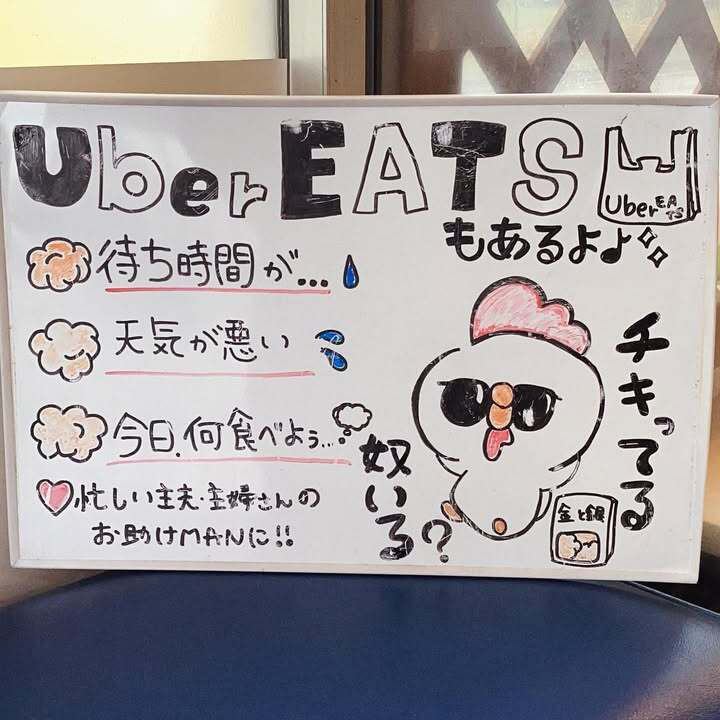 Uber EATS
Uber EATS
もあるよ♪
待ち時間が...
天気が悪い
今日、何食べよぅ...
忙しい主夫・主婦さんの
お助けMANに!!
チキってる
奴いる?
金と銀